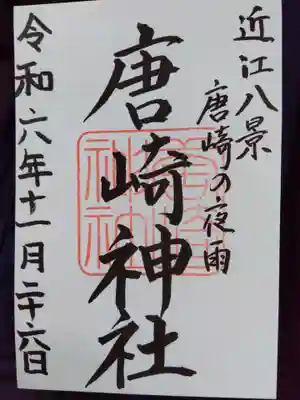 近江八景
唐崎の夜雨
唐崎神社
令和六年十一月二十六日